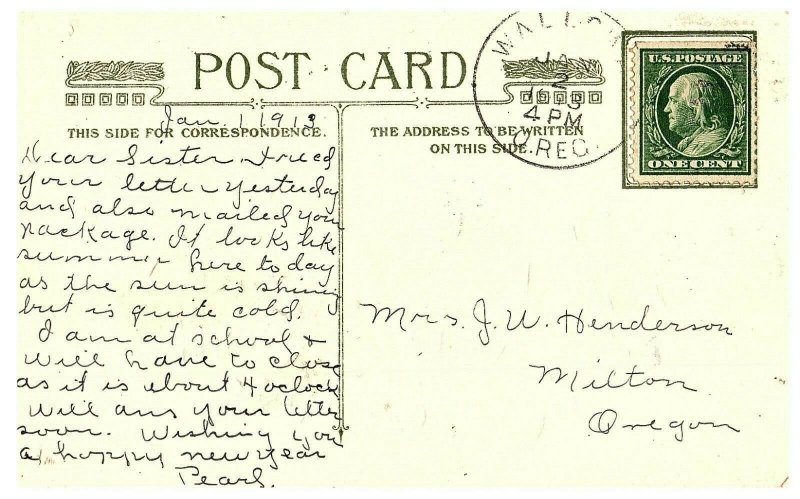 POST CARD
WALLOW
JAN
2
4 PM
OREG.
U.S. POSTAGE
ONE CENT
Jan. 1 1913
THIS SIDE FOR CORRESPONDENCE.
THE ADDRESS TO BE WRITTEN
ON THIS SIDE.
Dear Sister
your letter yesterday
and also mailed your
package. It looks like
summer here to day
as the sun is shining
but is quite cold.
I am at school &
will have to close
as it is about 4 oclock
will ans your letter
soon. Wishing you
a happy new year
Pearl.
Mrs. J. W. Henderson
Milton
Oregon